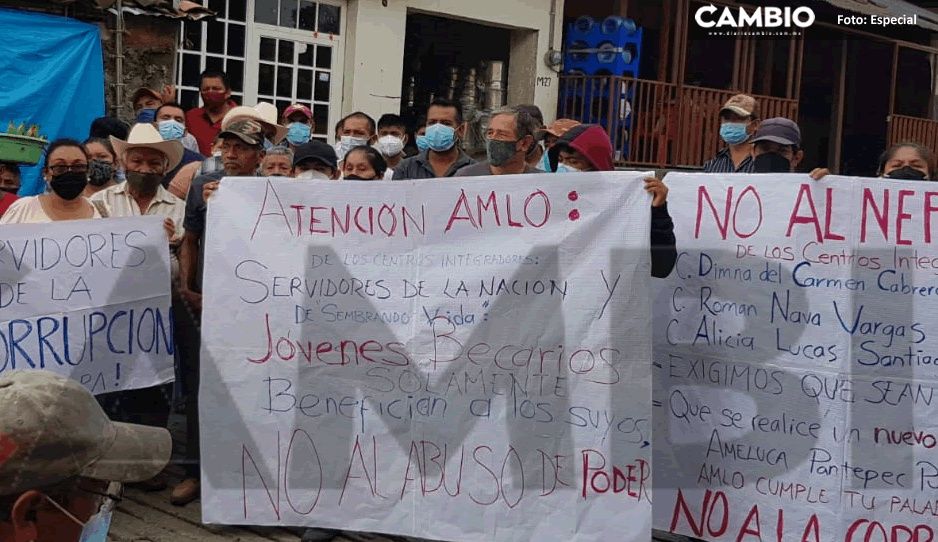 CAMBIO
www.diariocambio.com.mx
Foto: Especial
M27
SERVIDORES
DE LA
CORRUPCION
!
ATENCIÓN AMLO:
DE LOS CENTROS INTEGRADORES:
SERVIDORES DE LA NACION Y
DE "SEMBRANDO Vida":
Jóvenes Becarios
SOLAMENTE
Benefician a los suyos,
NO AL ABUSO DE PODER
NO AL NEP
DE LOS Centros Integ
C. Dimna del Carmen Cabrer
C. Roman Nava Vargas
C. Alicia Lucas Santia
-EXIGIMOS QUE SEAN
- Que se realice un nuevo
AMELUCA Pantepec P
AMLO CUMPLE TU PALA
NO A LA CORR